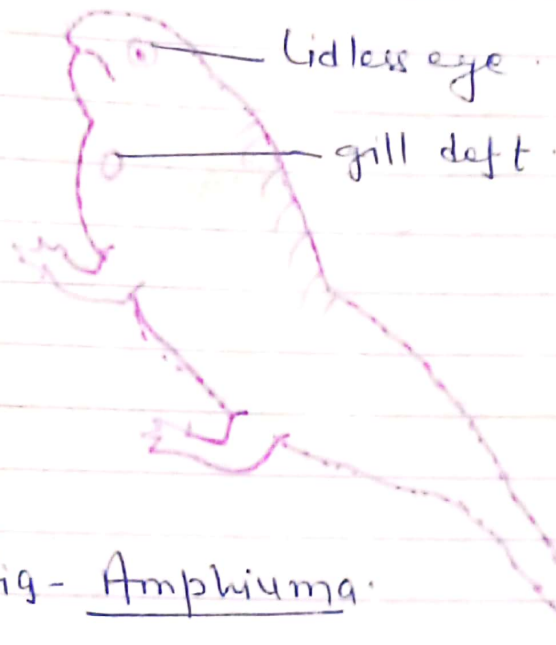 Lidless eye.
gill deft.
ig- Amphiuma.